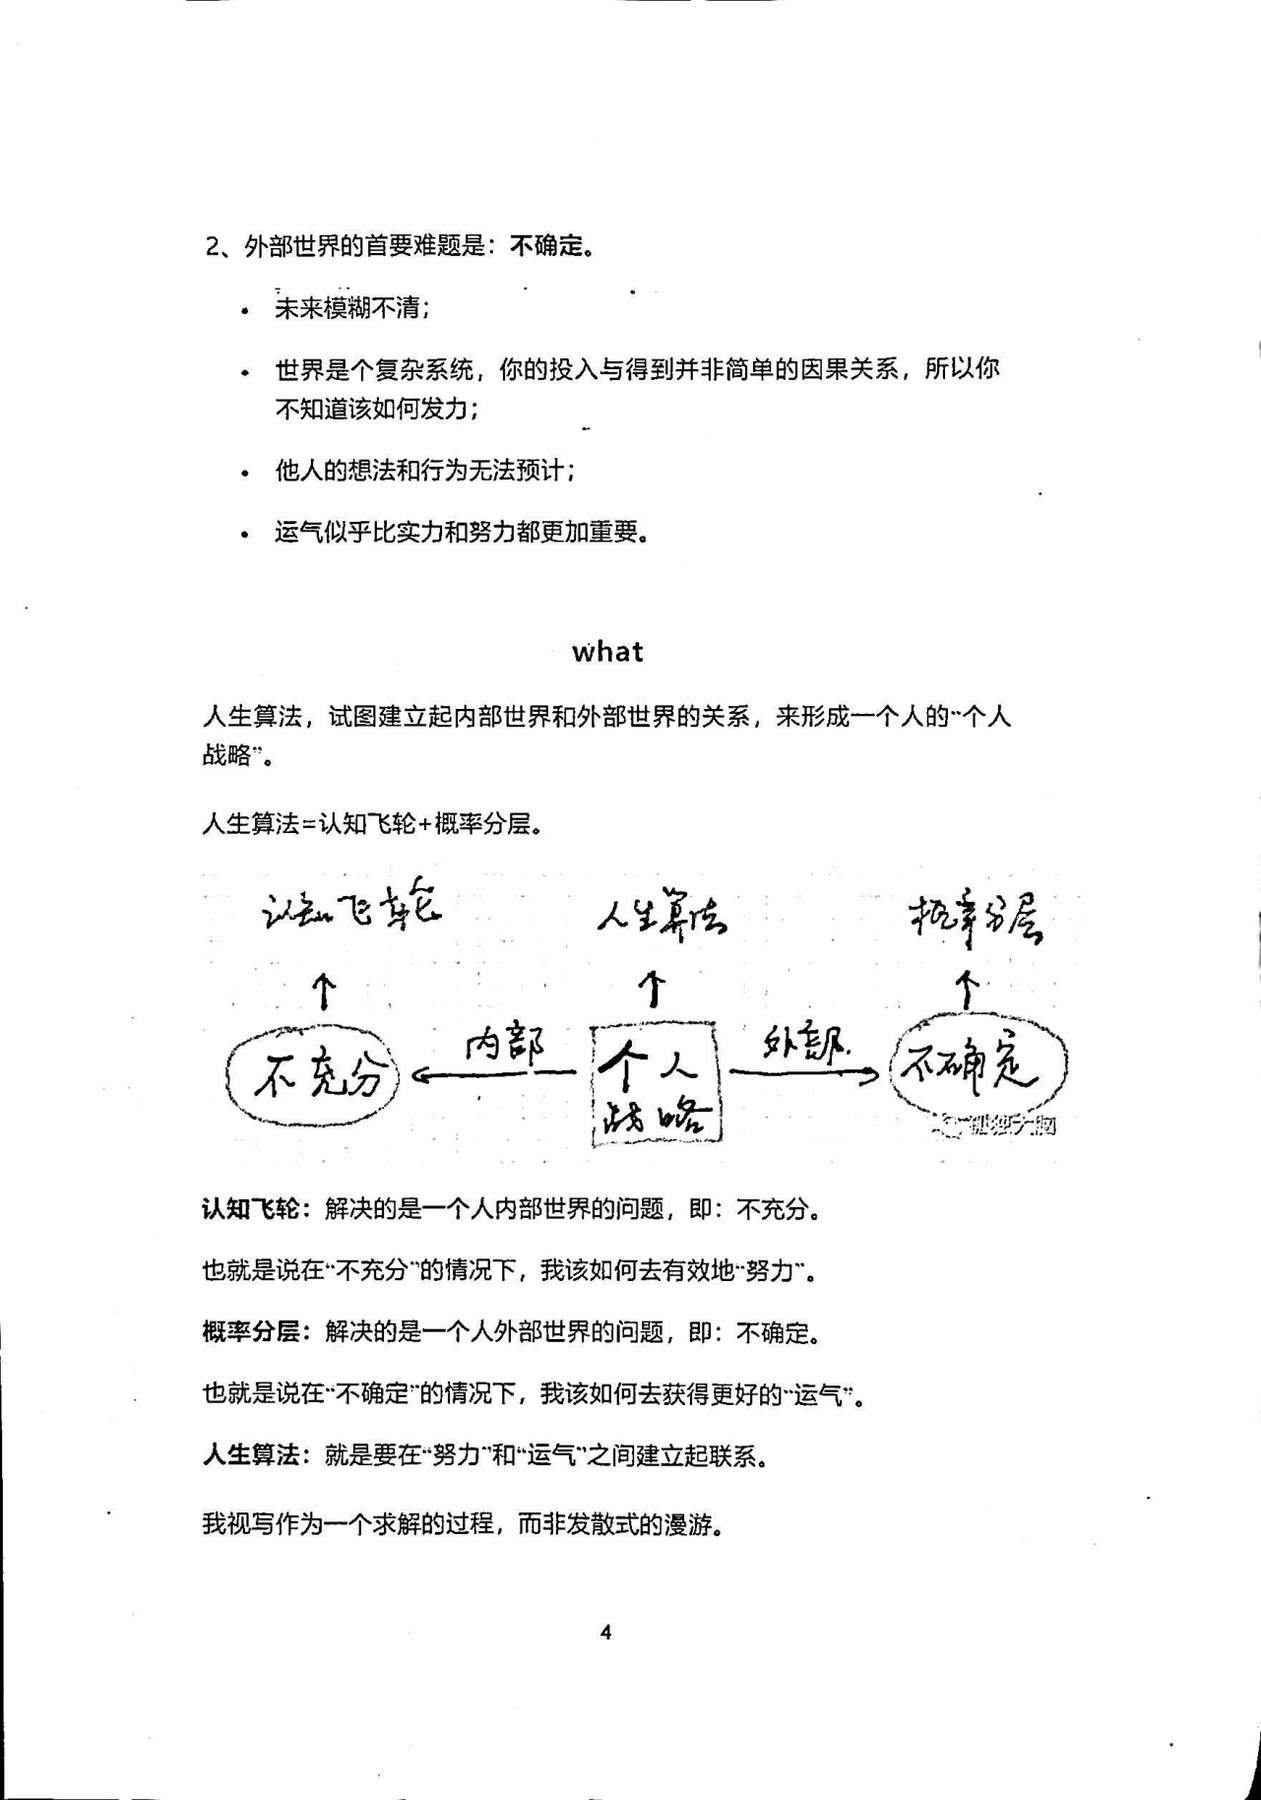 2、外部世界的首要难题是：不确定。
• 未来模糊不清；
• 世界是个复杂系统，你的投入与得到并非简单的因果关系，所以你
不知道该如何发力；
• 他人的想法和行为无法预计；
• 运气似乎比实力和努力都更加重要。
what
人生算法，试图建立起内部世界和外部世界的关系，来形成一个人的“个人
战略”。
人生算法=认知飞轮+概率分层。
认知飞轮 人生算法 概率分层
↑ ↑ ↑
不充分 内部 个人 外部 不确定
战略
孤独大脑
认知飞轮：解决的是一个人内部世界的问题，即：不充分。
也就是说在“不充分”的情况下，我该如何去有效地“努力”。
概率分层：解决的是一个人外部世界的问题，即：不确定。
也就是说在“不确定”的情况下，我该如何去获得更好的“运气”。
人生算法：就是要在“努力”和“运气”之间建立起联系。
我视写作为一个求解的过程，而非发散式的漫游。
4